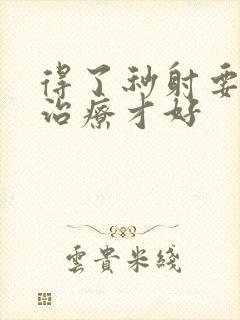 得了秒射要
治療才好
雲貴米綫